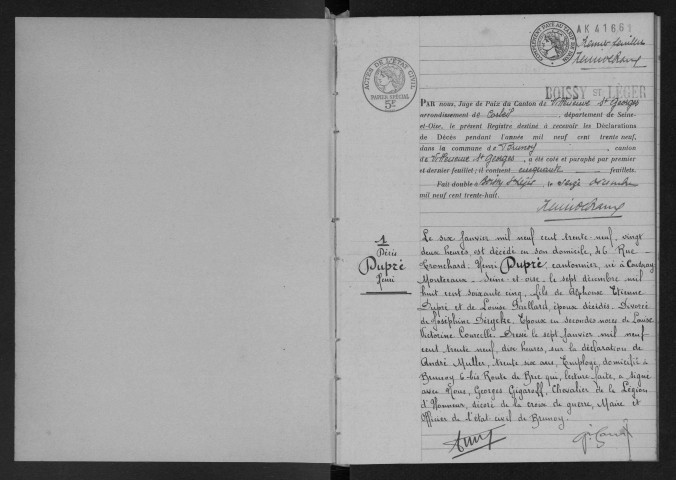 AK4166
BOISSY ST LÉGER
ACTES DE L'ÉTAT CIVIL
PAPIER SPÉCIAL
5F
PAR nous, Juge de Paix du Canton de Villeneuve St Georges
arrondissement de Corbeil, département de Seine-
et-Oise, le présent Registre destiné à recevoir les Déclarations
de Décès pendant l'année mil neuf cent trente neuf,
dans la commune de Brunoy, canton
de Villeneuve St Georges, a été coté et paraphé par premier
et dernier feuillet; il contient cinquante feuillets.
Fait double à Boissy St Léger, le seize décembre
mil neuf cent trente-huit.
1
Décès
Dupré
Henri
Le six Janvier mil neuf cent trente-neuf, vingt
deux heures, est décédé en son domicile, 46 Rue
Tronchard: Henri Dupré, cantonnier, né à
Montceaux. Seine et oise, le sept décembre mil
huit cent soixante cinq, fils de Alphonse Etienne
Dupré et de Louise Guillard, époux décédés. Divorcé
de Joséphine Diegcke. Epoux en secondes noces de Louise
Victorine Courcelle. Dressé le sept Janvier mil neuf
cent trente neuf, dix heures, sur la déclaration de
André Muller, trente six ans, Employé, domicilié à
Brunoy 6 bis Route de Brie qui, lecture faite, a signé
avec Nous, Georges Gigaroff, Chevalier de la Légion
d'Honneur, décoré de la croix de guerre, Maire et
Officier de l'état civil de Brunoy.